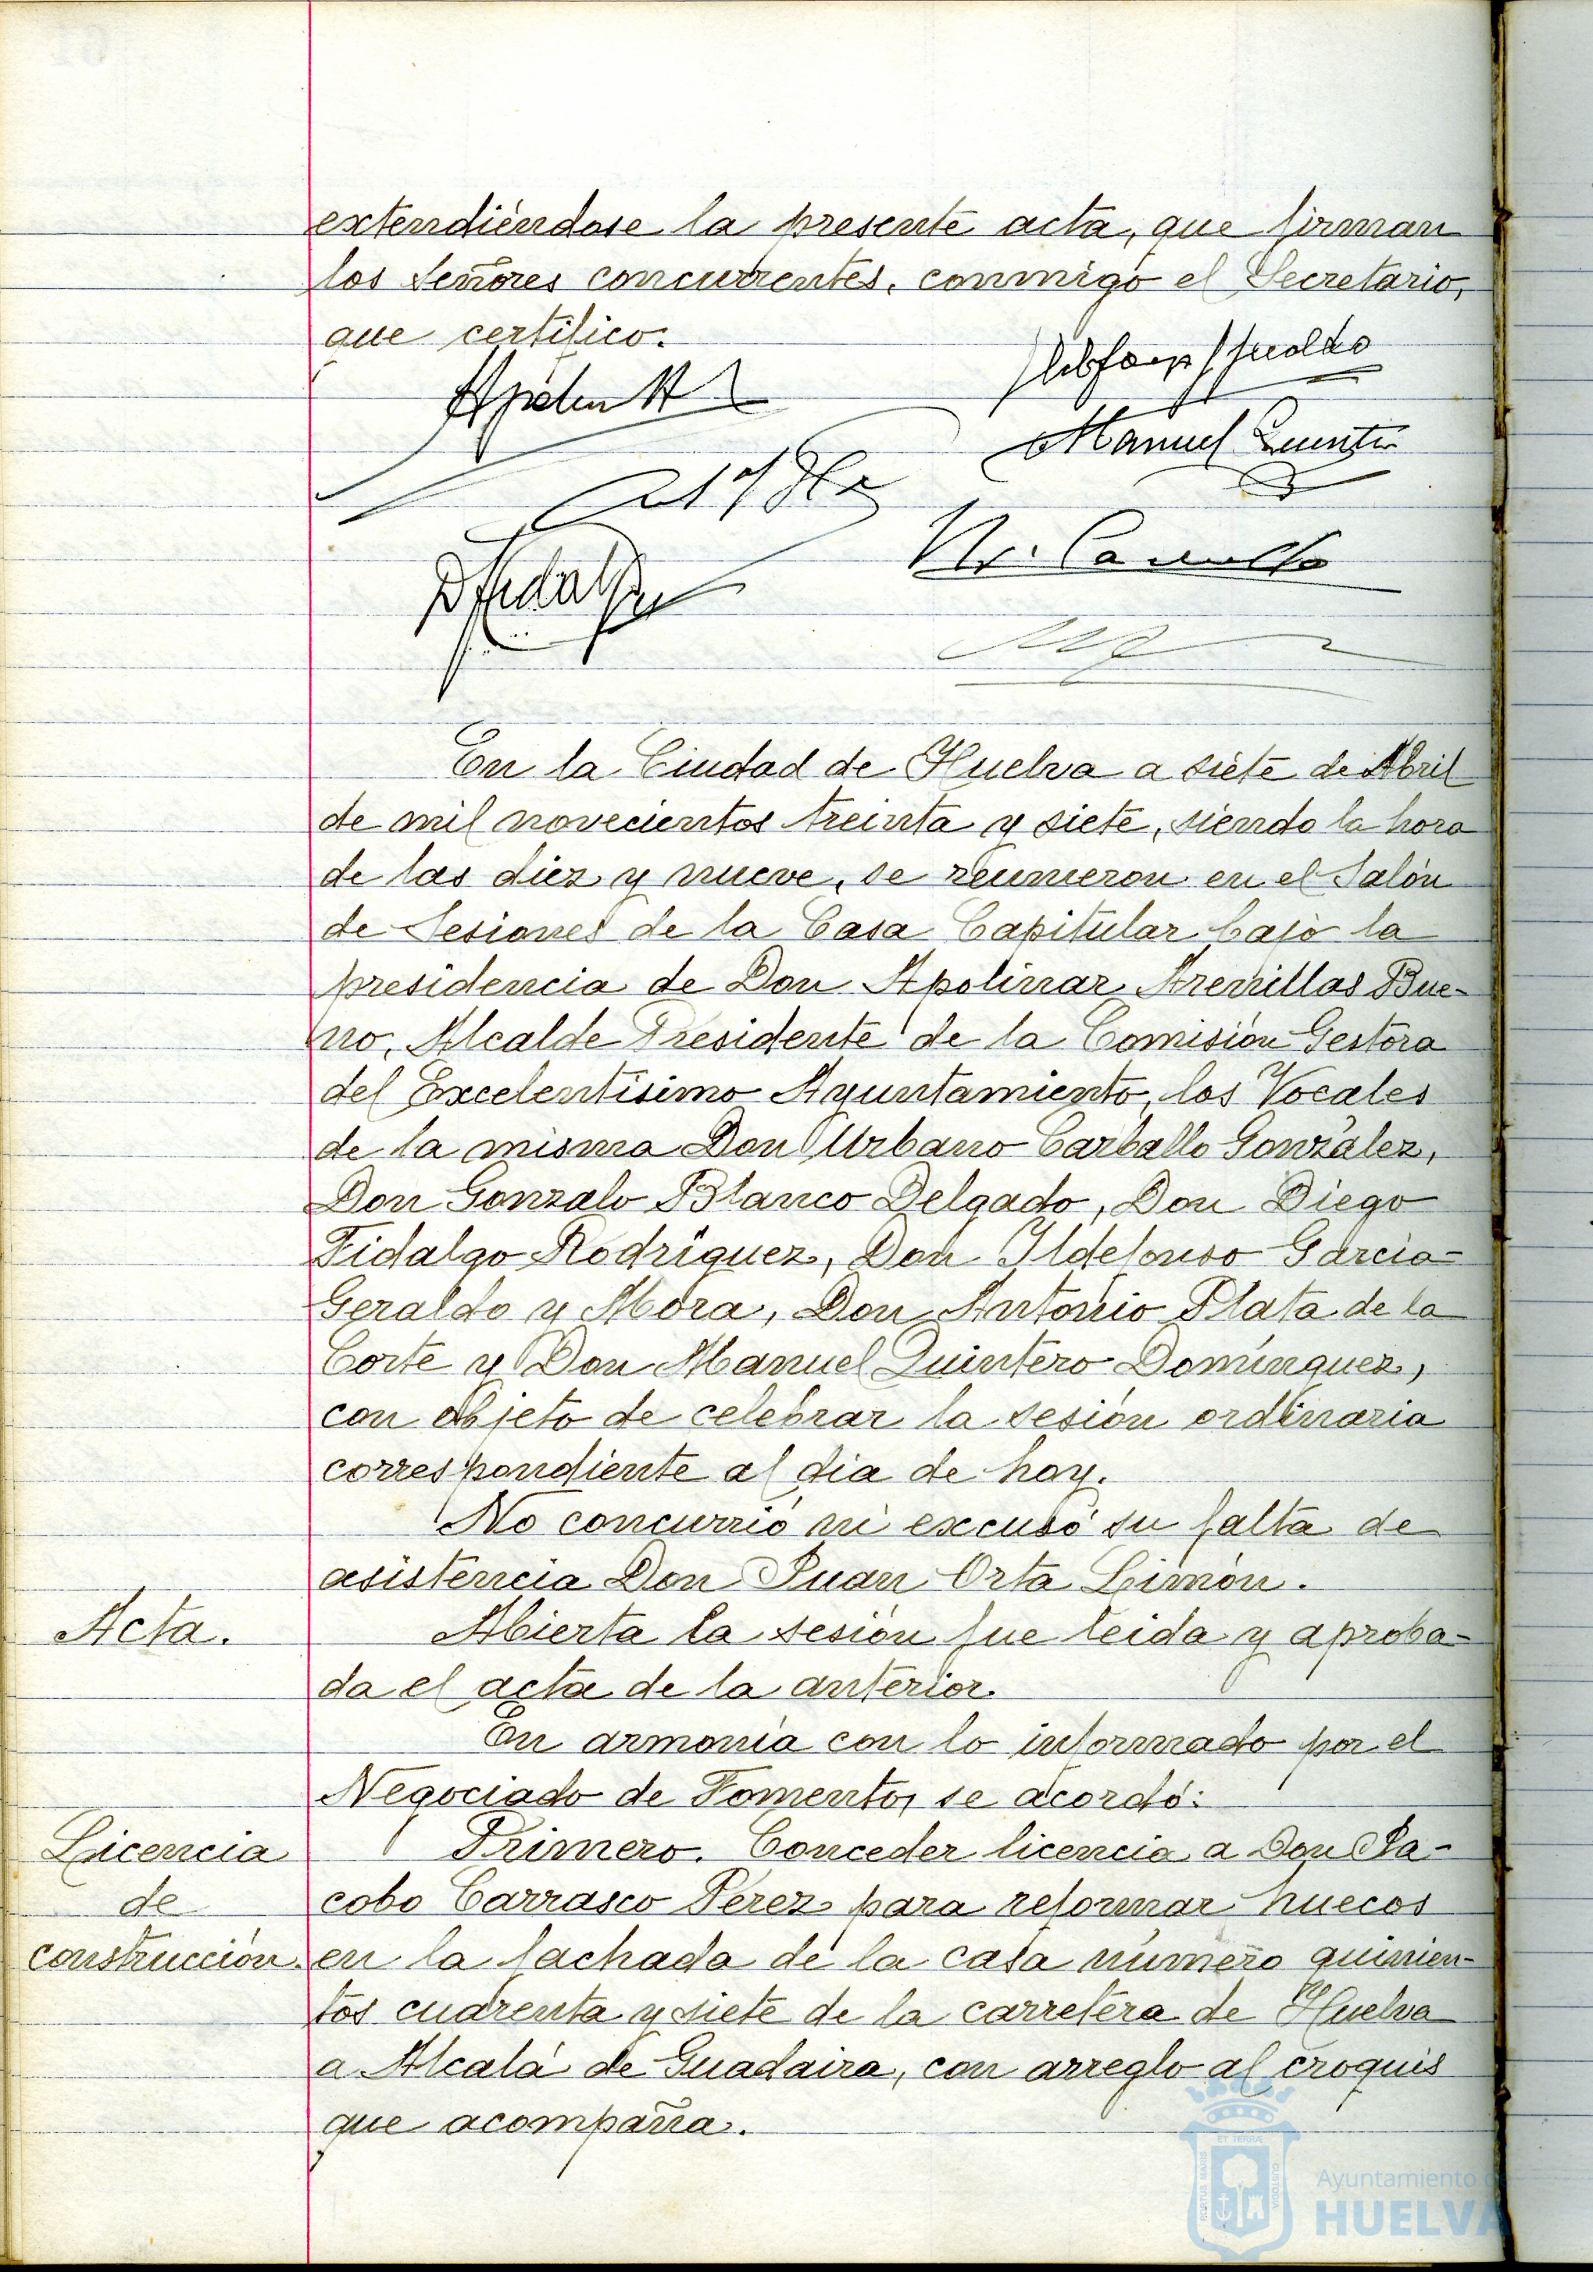 extendiéndose la presente acta, que firman
los Señores concurrentes, conmigo el Secretario,
que certifico.
Manuel Quintero
D Fidalgo
En la Ciudad de Huelva a siete de Abril
de mil novecientos treinta y siete, siendo la hora
de las diez y nueve, se reunieron en el Salón
de Sesiones de la Casa Capitular bajo la
presidencia de Don Apolinar Arenillas Bue-
no, Alcalde Presidente de la Comisión Gestora
del Excelentísimo Ayuntamiento, los Vocales
de la misma Don Urbano Carballo González,
Don Gonzalo Blanco Delgado, Don Diego
Fidalgo Rodríguez, Don Ildefonso Garcia-
Geraldo y Mora, Don Antonio Plata de la
Corte y Don Manuel Quintero Domínguez,
con objeto de celebrar la sesión ordinaria
correspondiente al dia de hoy.
No concurrió ni excusó su falta de
asistencia Don Juan Orta Limón.
Acta.
Abierta la sesión fue leida y aproba-
da el acta de la anterior.
En armonía con lo informado por el
Negociado de Fomento, se acordó:
Licencia
de
construcción.
Primero. Conceder licencia a Don Ja-
cobo Carrasco Pérez para reformar huecos
en la fachada de la casa número quinien-
tos cuarenta y siete de la carretera de Huelva
a Alcalá de Guadaira, con arreglo al croquis
que acompaña.
PORTUS MARIS
ET TERRÆ
CUSTODIA
Ayuntamiento de
HUELVA